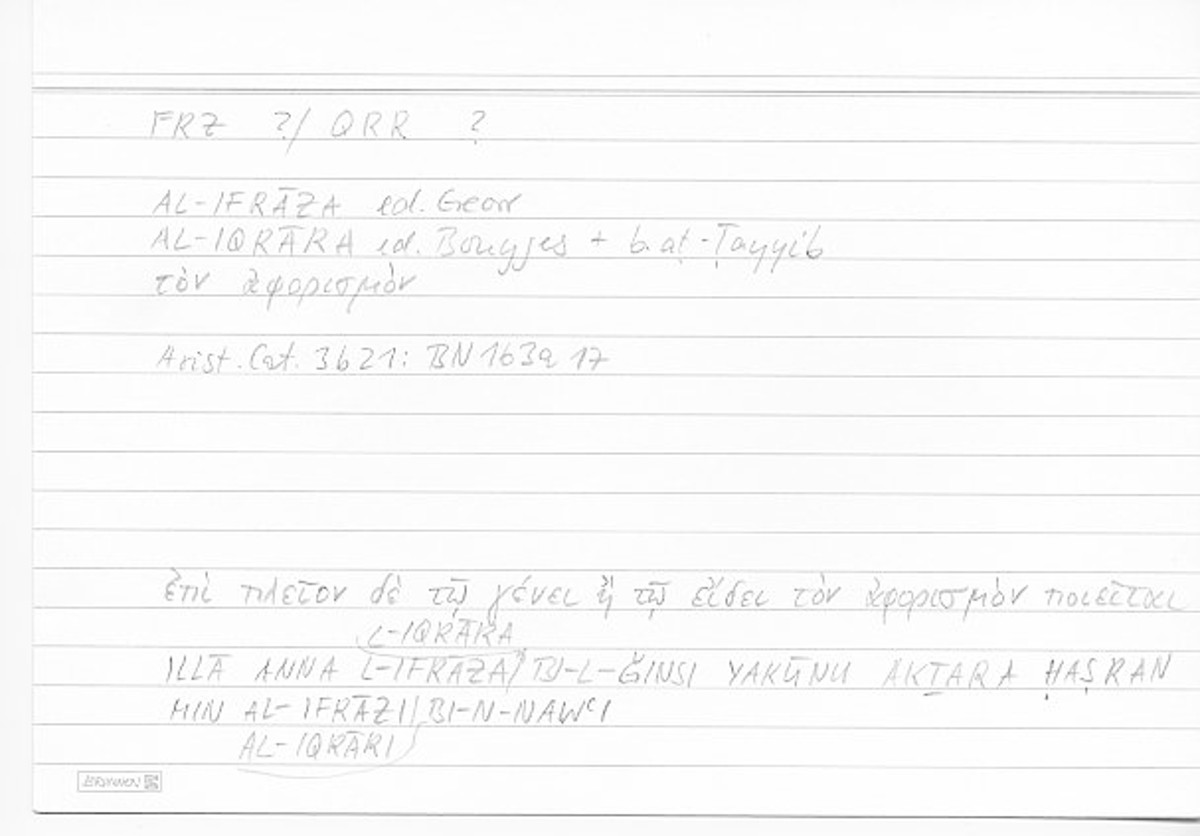 FRZ ?/ QRR ?
AL-IFRĀZA ed. Georr
AL-IQRĀRA ed. Bouyges + b. aṭ-Ṭayyib
τὸν ἀφορισμὸν
Arist. Cat. 3b21: BN 163a 17
ἐπὶ πλεῖον δὲ τῷ γένει ἢ τῷ εἴδει τὸν ἀφορισμὸν ποιεῖται
L-IQRĀRA
ILLĀ ANNA L-IFRĀZA/ BI-L-ǦINSI YAKŪNU AKṮARA ḤAṢRAN
MIN AL-IFRĀZI/ BI-N-NAWʿI
AL-IQRĀRI
BRUNNEN